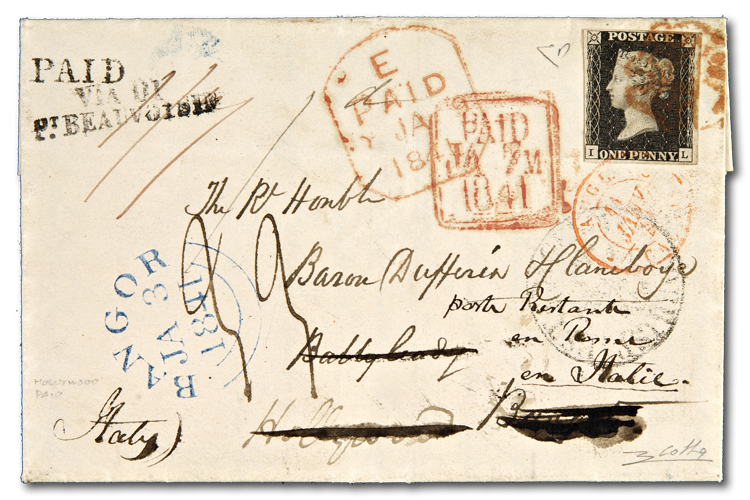 PAID
VIA DI
PT. BEAUVOISIN
E
PAID
JA
184
PAID
JA 7 M
1841
POSTAGE
I ONE PENNY L
The Rt Honble
Baron Dufferin & Claneboye
poste Restante
Ballyleidy
en Rome
en Italie.
BANGOR
JA 3
1841
HOLLYWOOD
PAID
(Italy)
Hollywood